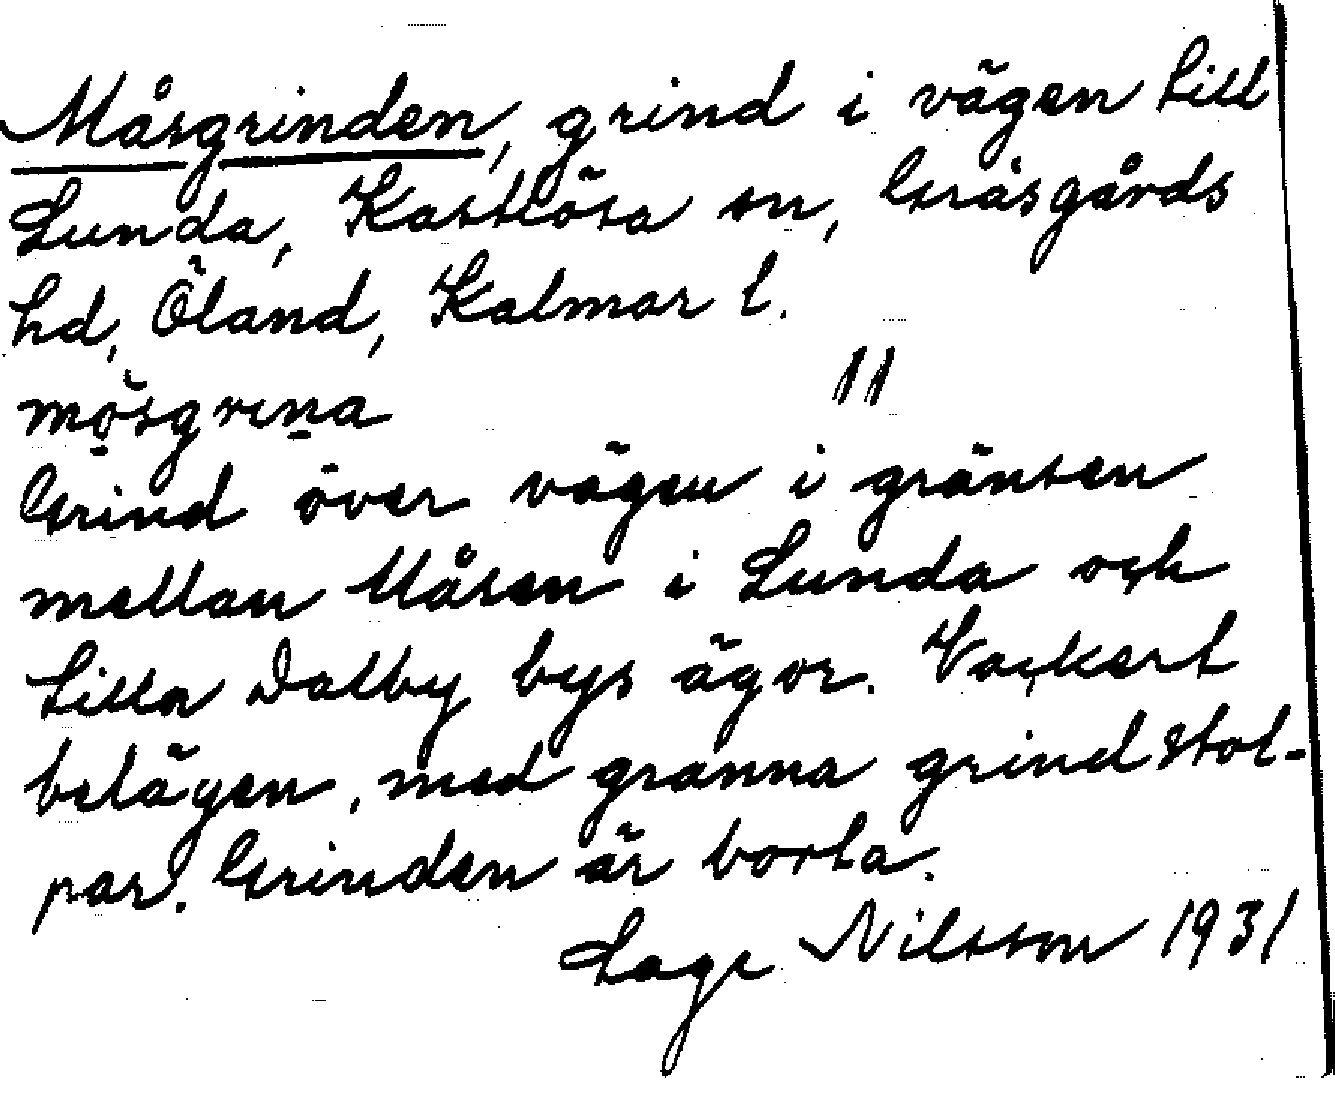 Måsgrinden, grind i vägen till
Lunda, Kastlösa sn, Gräsgårds
hd, Öland, Kalmar l.
mo̱̊sgrɩṉa 11
Grind över vägen i gränsen
mellan Måsen i Lunda och
Lilla Dalby bys ägor. Vackert
belägen, med granna grindstol-
par. Grinden är borta.
Lage Nilsson 1931